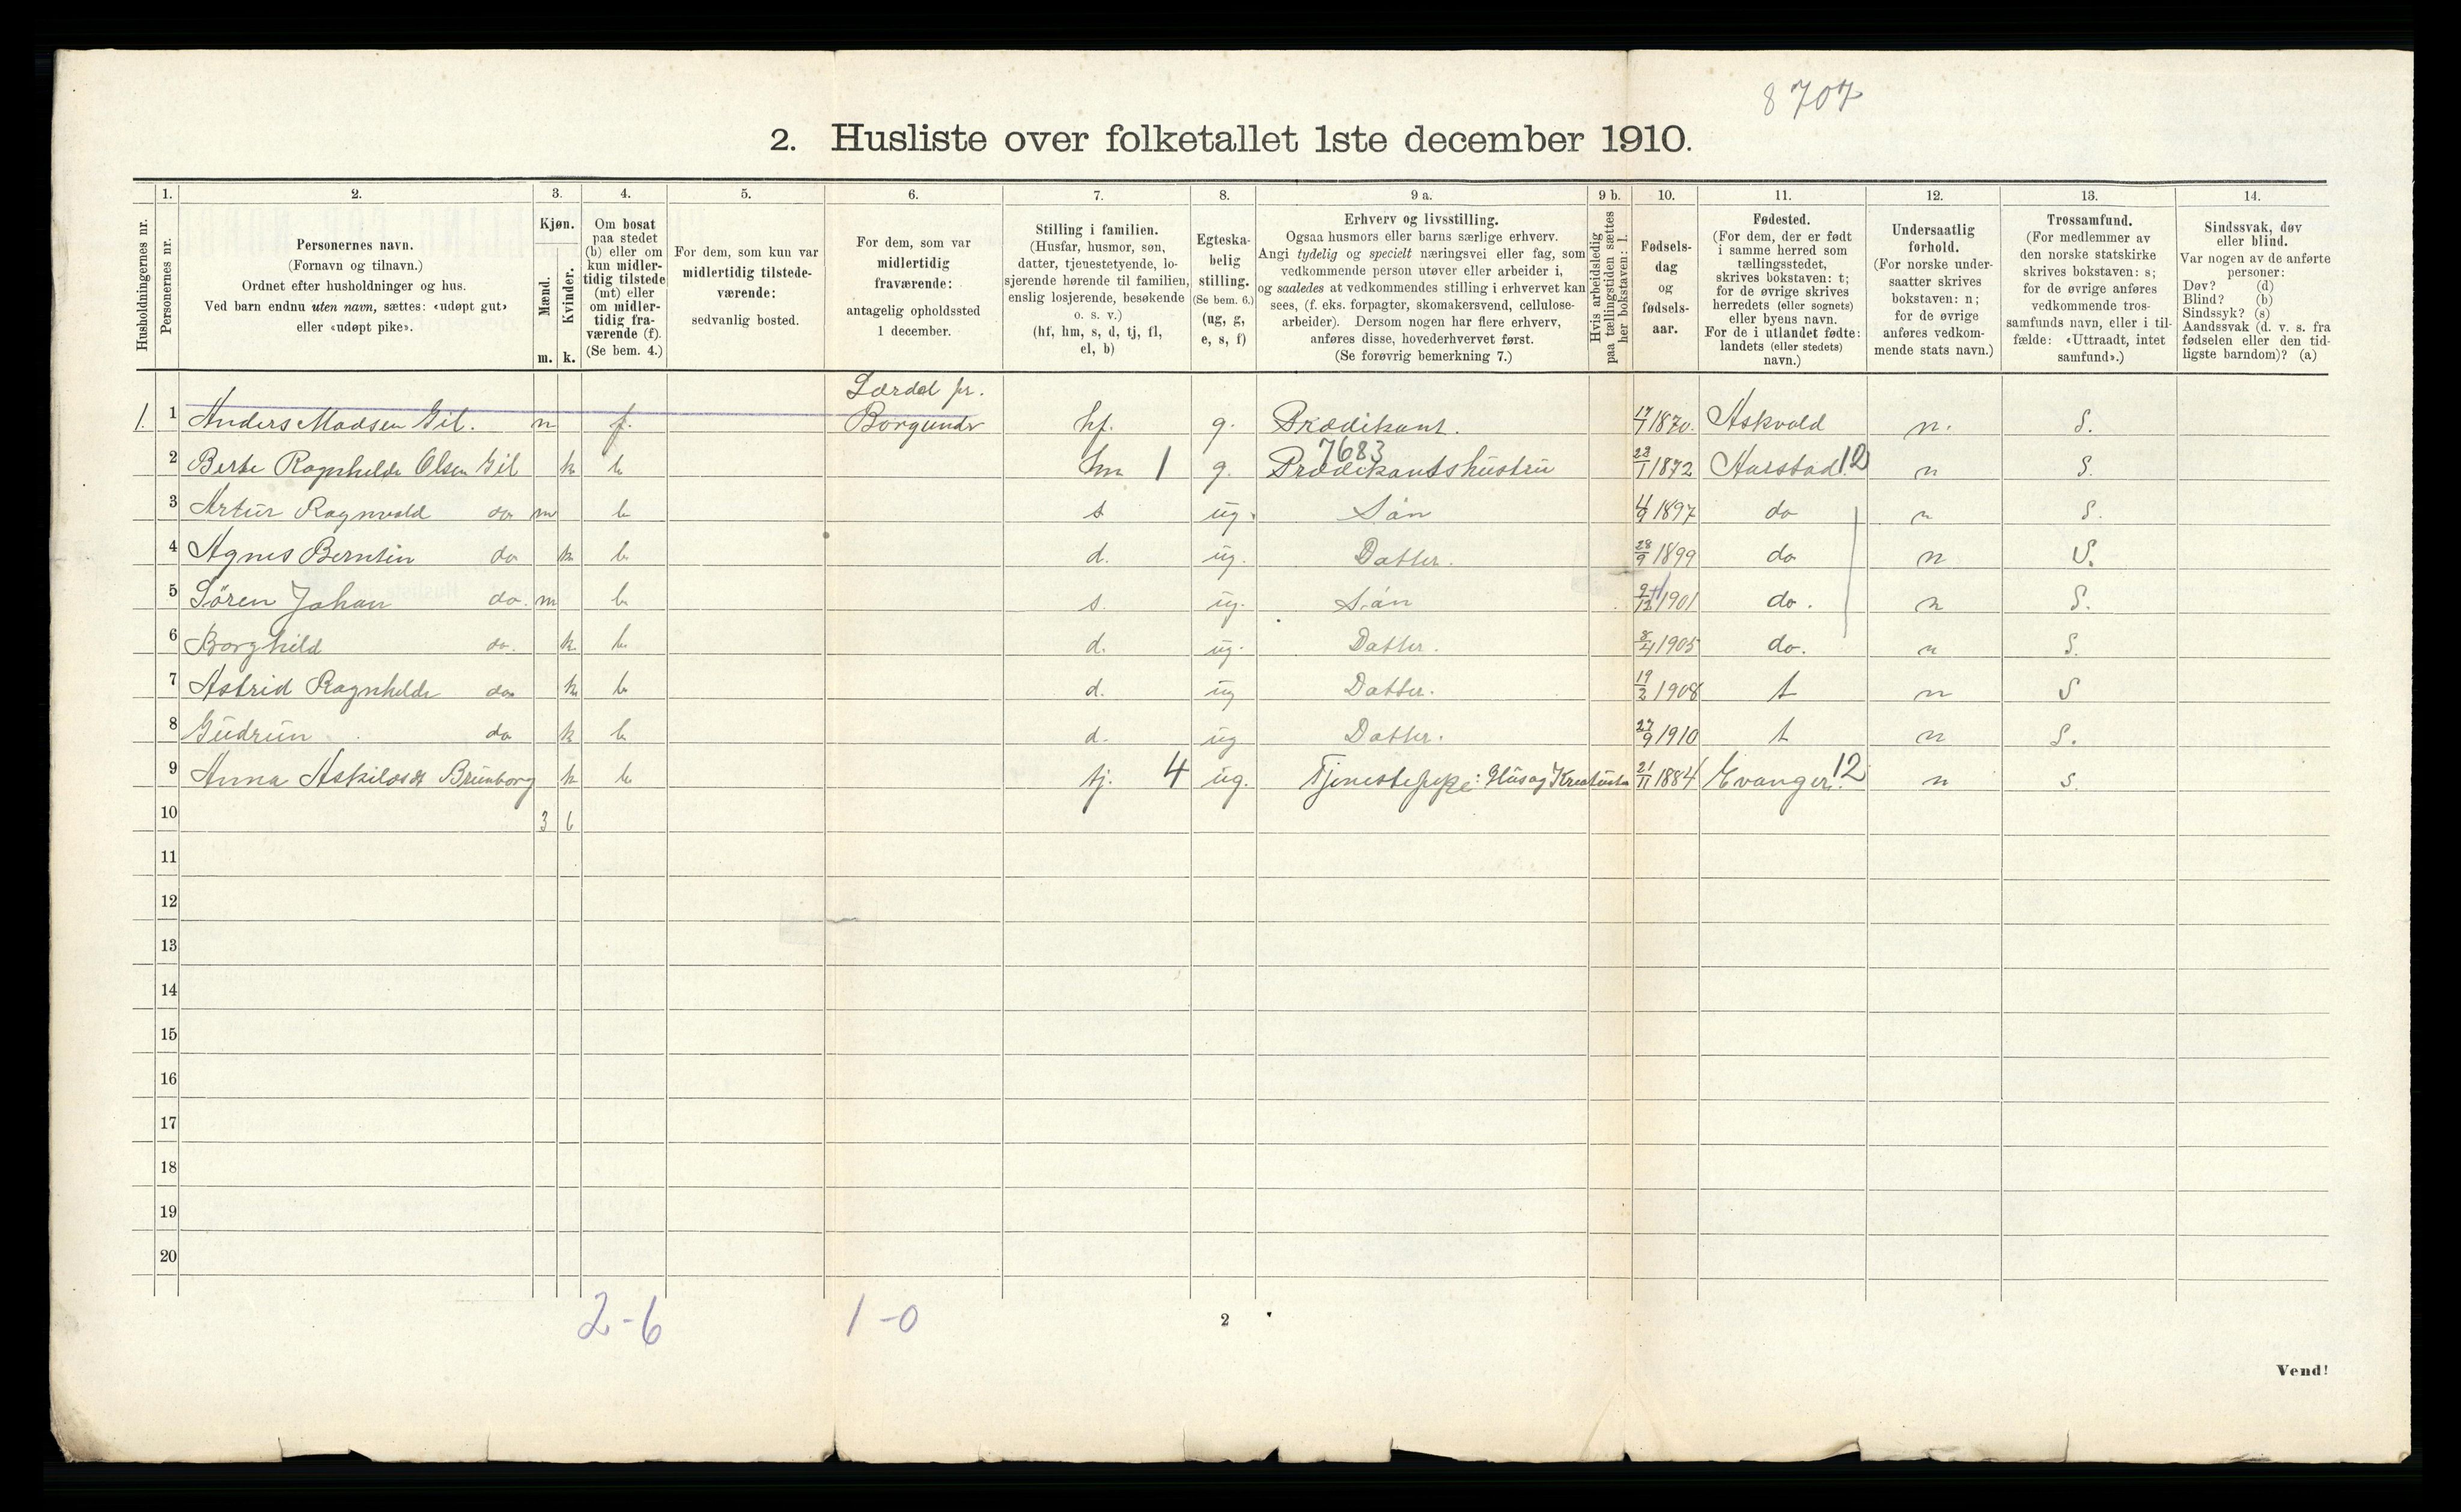 8707
2. Husliste over folketallet 1ste december 1910.
Husholdningernes nr.
1.
Personernes nr.
2.
Personernes navn.
(Fornavn og tilnavn.)
Ordnet efter husholdninger og hus.
Ved barn endnu uten navn, sættes: «udøpt gut»
eller «udøpt pike».
3.
Kjøn.
Mænd.
Kvinder.
m. k.
4.
Om bosat
paa stedet
(b) eller om
kun midler-
tidig tilstede
(mt) eller
om midler-
tidig fra-
værende (f).
(Se bem. 4.)
5.
For dem, som kun var
midlertidig tilstede-
værende:
sedvanlig bosted.
6.
For dem, som var
midlertidig
fraværende:
antagelig opholdssted
1 december.
7.
Stilling i familien.
(Husfar, husmor, søn,
datter, tjenestetyende, lo-
sjerende hørende til familien,
enslig losjerende, besøkende
o. s. v.)
(hf, hm, s, d, tj, fl,
el, b)
8.
Egteska-
belig
stilling.
(Se bem. 6.)
(ug, g,
e, s, f)
9 a.
Erhverv og livsstilling.
Ogsaa husmors eller barns særlige erhverv.
Angi tydelig og specielt næringsvei eller fag, som
vedkommende person utøver eller arbeider i,
og saaledes at vedkommendes stilling i erhvervet kan
sees, (f. eks. forpagter, skomakersvend, cellulose-
arbeider). Dersom nogen har flere erhverv,
anføres disse, hovederhvervet først.
(Se forøvrig bemerkning 7.)
9 b.
Hvis arbeidsledig
paa tællingstiden sættes
her bokstaven: l.
10.
Fødsels-
dag
og
fødsels-
aar.
11.
Fødested.
(For dem, der er født
i samme herred som
tællingsstedet,
skrives bokstaven: t;
for de øvrige skrives
herredets (eller sognets)
eller byens navn.
For de i utlandet fødte:
landets (eller stedets)
navn.)
12.
Undersaatlig
forhold.
(For norske under-
saatter skrives
bokstaven: n;
for de øvrige
anføres vedkom-
mende stats navn.)
13.
Trossamfund.
(For medlemmer av
den norske statskirke
skrives bokstaven: s;
for de øvrige anføres
vedkommende tros-
samfunds navn, eller i til-
fælde: «Uttraadt, intet
samfund».)
14.
Sindssvak, døv
eller blind.
Var nogen av de anførte
personer:
Døv? (d)
Blind? (b)
Sindssyk? (s)
Aandssvak (d. v. s. fra
fødselen eller den tid-
ligste barndom)? (a)
Lærdal pr.
1. 1 Anders Madsen Gil. m f. Borgund hf. g. Prædikant. 17/7 1870. Askvold n. S.
7683
2 Berte Ragnhilde Olsen Gil k b hm 1 g. Prædikantshustru 23/1 1872 Aarstad 12 n S.
3 Artur Ragnvald do m b s ug. Søn 4/9 1897 do n S.
4 Agnes Berntin do k b d. ug. Datter. 28/9 1899 do n S.
5 Sören Johan do. m b s. ug. Søn 9/12 1901 do. n S.
6 Borghild do. k. b d. ug. Datter. 8/4 1905 do. n S.
7 Astrid Ragnhilde do k b d. ug Datter. 19/2 1908 t n S
8 Gudrun do k b d. ug Datter. 27/9 1910 t n S.
9 Anna Askilosdt Brunborg k b tj. 4 ug. Tjenestepige: Hus og 21/11 1884 Evanger. 12 n s.
10 3 6
11
12
13
14
15
16
17
18
19
20
2-6 1-0 2
Vend!